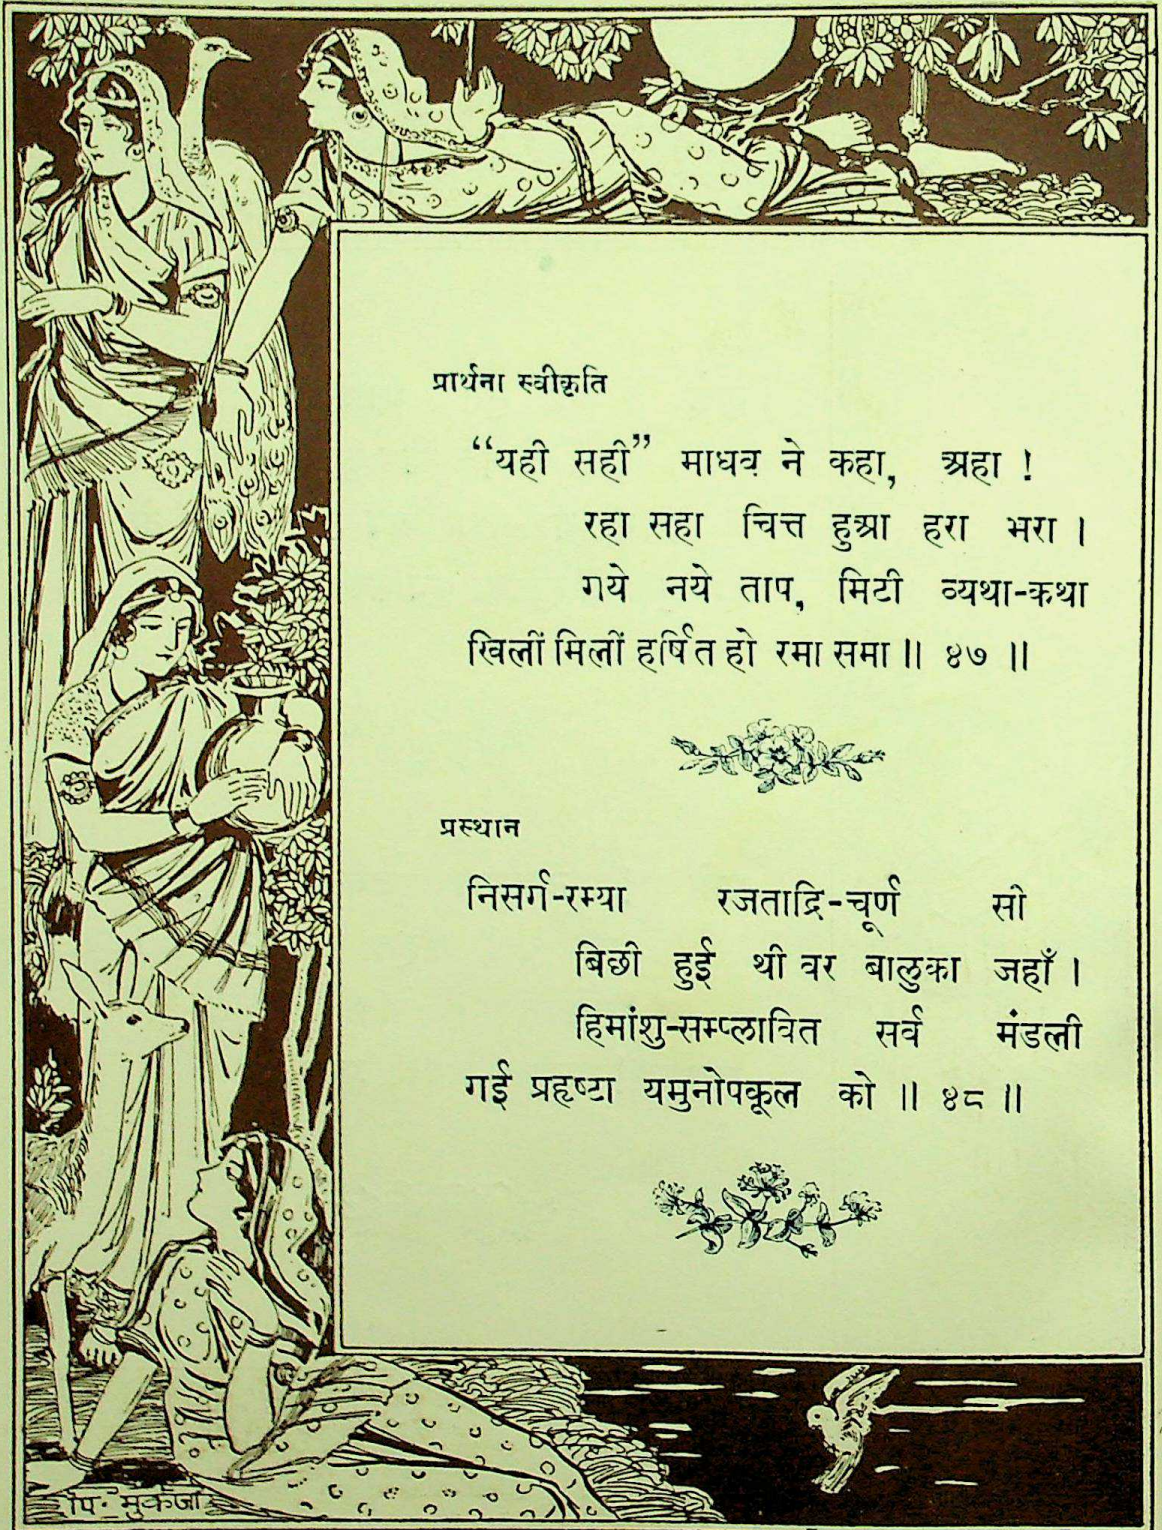 प्रार्थना स्वीकृति
“यही सही” माधव ने कहा, अहा !
रहा सहा चित्त हुआ हरा भरा ।
गये नये ताप, मिटी व्यथा-कथा
खिलीं मिलीं हर्षित हो रमा समा ॥ ४७ ॥
प्रस्थान
निसर्ग-रम्या रजताद्रि-चूर्ण सी
बिछी हुई थी वर बालुका जहाँ ।
हिमांशु-सम्प्लावित सर्व मंडली
गई प्रहृष्टा यमुनोपकूल को ॥ ४८ ॥
पि. मुकर्जी